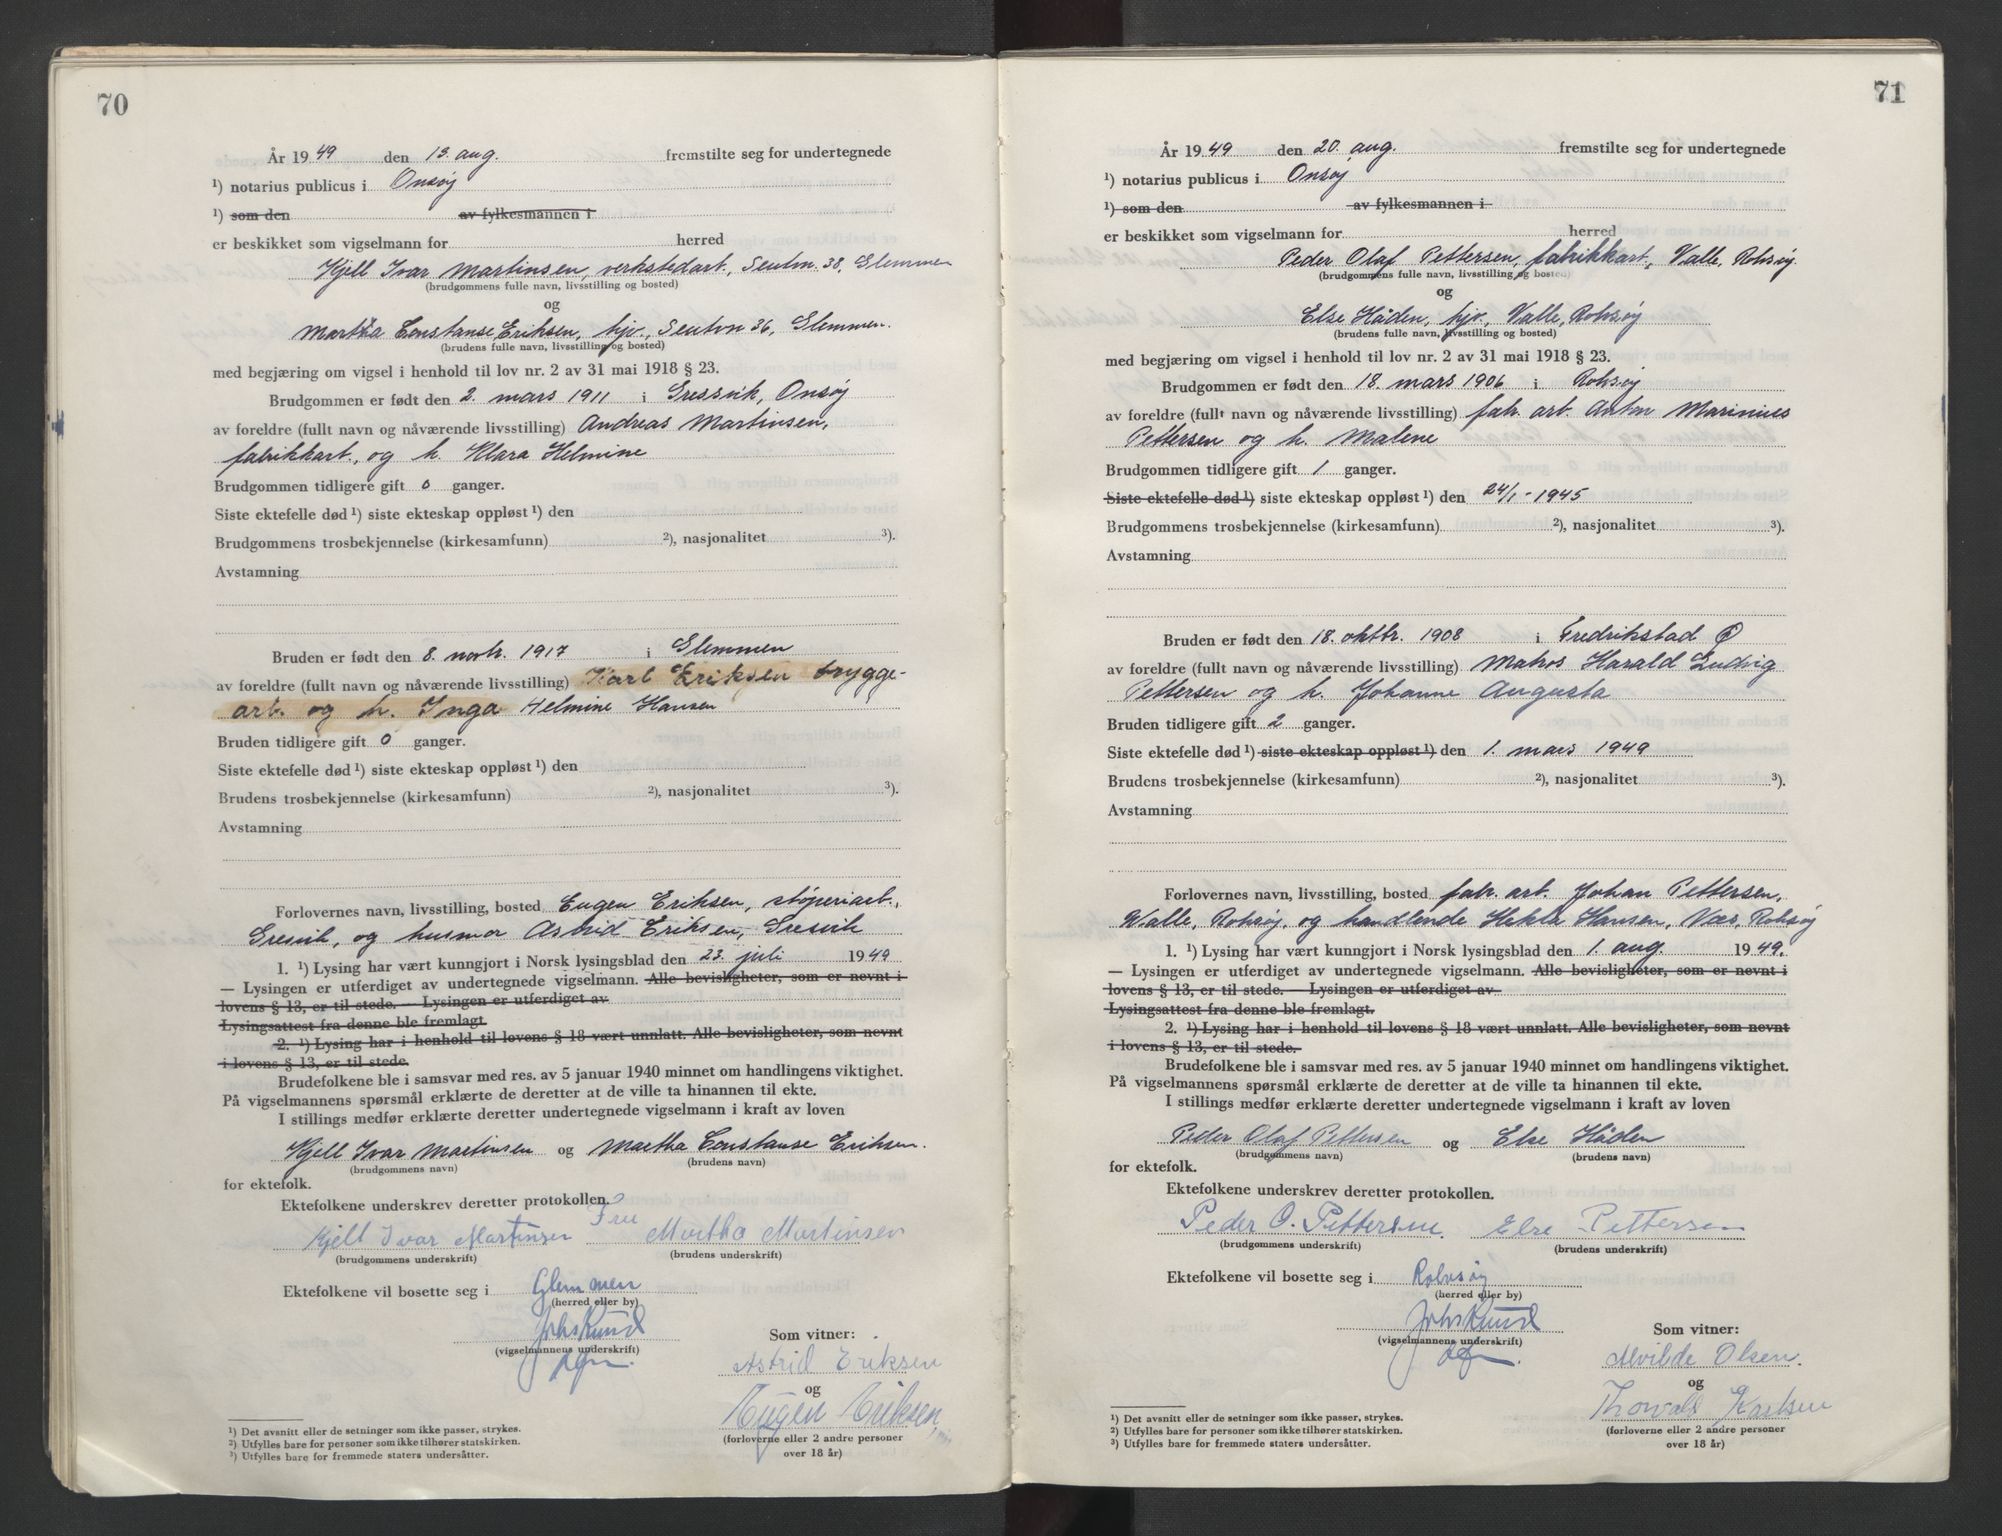 70
År 1949 den 13. aug. fremstilte seg for undertegnede
¹) notarius publicus i Onsøy
¹) som den av fylkesmannen i
er beskikket som vigselmann for herred
Kjell Ivar Martinsen, verkstedarb., 38, Glemmen
(brudgommens fulle navn, livsstilling og bosted)
og
Martha Constanse Eriksen, hjv., 36, Glemmen.
(brudens fulle navn, livsstilling og bosted)
med begjæring om vigsel i henhold til lov nr. 2 av 31 mai 1918 § 23.
Brudgommen er født den 2. mars 1911 i Gressvik, Onsøy
av foreldre (fullt navn og nåværende livsstilling) Andreas Martinsen,
fabrikkarb., og h. Klara Helmine
Brudgommen tidligere gift 0 ganger.
Siste ektefelle død ¹) siste ekteskap oppløst ¹) den
Brudgommens trosbekjennelse (kirkesamfunn) ²), nasjonalitet ³).
Avstamning
Bruden er født den 8. novbr. 1917 i Glemmen
av foreldre (fullt navn og nåværende livsstilling) Karl Eriksen brygge-
arb. og h. Inga Helmine Hansen
Bruden tidligere gift 0 ganger.
Siste ektefelle død ¹) siste ekteskap oppløst ¹) den
Brudens trosbekjennelse (kirkesamfunn) ²), nasjonalitet ³).
Avstamning
Forlovernes navn, livsstilling, bosted Eugen Eriksen, støperiarb.,
Gresvik, og husmor Astrid Eriksen, Gresvik
1. ¹) Lysing har vært kunngjort i Norsk lysingsblad den 23. juli 1949
— Lysingen er utferdiget av undertegnede vigselmann. Alle bevisligheter, som er nevnt i
lovens § 13, er til stede. — Lysingen er utferdiget av
Lysingsattest fra denne ble fremlagt.
2. ¹) Lysing har i henhold til lovens § 18 vært unnlatt. Alle bevisligheter, som nevnt
i lovens § 13, er til stede.
Brudefolkene ble i samsvar med res. av 5 januar 1940 minnet om handlingens viktighet.
På vigselmannens spørsmål erklærte de deretter at de ville ta hinannen til ekte.
I stillings medfør erklærte deretter undertegnede vigselmann i kraft av loven
Kjell Ivar Martinsen og Martha Constanse Eriksen.
(brudgommens navn) (brudens navn)
for ektefolk.
Ektefolkene underskrev deretter protokollen.
Kjell Ivar Martinsen Fru Martha Martinsen
(brudgommens underskrift) (brudens underskrift)
Ektefolkene vil bosette seg i Glemmen
(herred eller by)
Johs Kund
(vigselmannens underskrift)
Som vitner:
Astrid Eriksen
og
Eugen Eriksen
(forloverne eller 2 andre personer
over 18 år)
¹) Det avsnitt eller de setninger som ikke passer, strykes.
²) Utfylles bare for personer som ikke tilhører statskirken.
³) Utfylles bare for fremmede staters undersåtter.
71
År 1949 den 20. aug. fremstilte seg for undertegnede
¹) notarius publicus i Onsøy
¹) som den av fylkesmannen i
er beskikket som vigselmann for herred
Peder Olaf Pettersen, fabrikkarb., Valle, Rolvsøy.
(brudgommens fulle navn, livsstilling og bosted)
og
Else Håden, hjv., Valle, Rolvsøy
(brudens fulle navn, livsstilling og bosted)
med begjæring om vigsel i henhold til lov nr. 2 av 31 mai 1918 § 23.
Brudgommen er født den 18. mars 1906 i Rolvsøy
av foreldre (fullt navn og nåværende livsstilling) fabr. arb. Anton Marinius
Pettersen og h. Malene
Brudgommen tidligere gift 1 ganger.
Siste ektefelle død ¹) siste ekteskap oppløst ¹) den 24/1 - 1945
Brudgommens trosbekjennelse (kirkesamfunn) ²), nasjonalitet ³).
Avstamning
Bruden er født den 18. oktbr. 1908 i Fredrikstad Ø
av foreldre (fullt navn og nåværende livsstilling) Matros Harald Ludvig
Pettersen og h. Johanne Augusta
Bruden tidligere gift 2 ganger.
Siste ektefelle død ¹) siste ekteskap oppløst ¹) den 1. mars 1949
Brudens trosbekjennelse (kirkesamfunn) ²), nasjonalitet ³).
Avstamning
Forlovernes navn, livsstilling, bosted fabr. arb. Johan Pettersen,
Valle, Rolvsøy, og handlende Hekla Hansen, Næs, Rolvsøy
1. ¹) Lysing har vært kunngjort i Norsk lysingsblad den 1. aug 1949.
— Lysingen er utferdiget av undertegnede vigselmann. Alle bevisligheter, som er nevnt i
lovens § 13, er til stede. — Lysingen er utferdiget av
Lysingsattest fra denne ble fremlagt.
2. ¹) Lysing har i henhold til lovens § 18 vært unnlatt. Alle bevisligheter, som nevnt
i lovens § 13, er til stede.
Brudefolkene ble i samsvar med res. av 5 januar 1940 minnet om handlingens viktighet.
På vigselmannens spørsmål erklærte de deretter at de ville ta hinannen til ekte.
I stillings medfør erklærte deretter undertegnede vigselmann i kraft av loven
Peder Olaf Pettersen og Else Håden
(brudgommens navn) (brudens navn)
for ektefolk.
Ektefolkene underskrev deretter protokollen.
Peder O. Pettersen. Else Pettersen
(brudgommens underskrift) (brudens underskrift)
Ektefolkene vil bosette seg i Rolvsøy
(herred eller by)
Johs Kund
(vigselmannens underskrift)
Som vitner:
Alvilde Olsen.
og
Thorvald Karlsen
(forloverne eller 2 andre personer
over 18 år)
¹) Det avsnitt eller de setninger som ikke passer, strykes.
²) Utfylles bare for personer som ikke tilhører statskirken.
³) Utfylles bare for fremmede staters undersåtter.